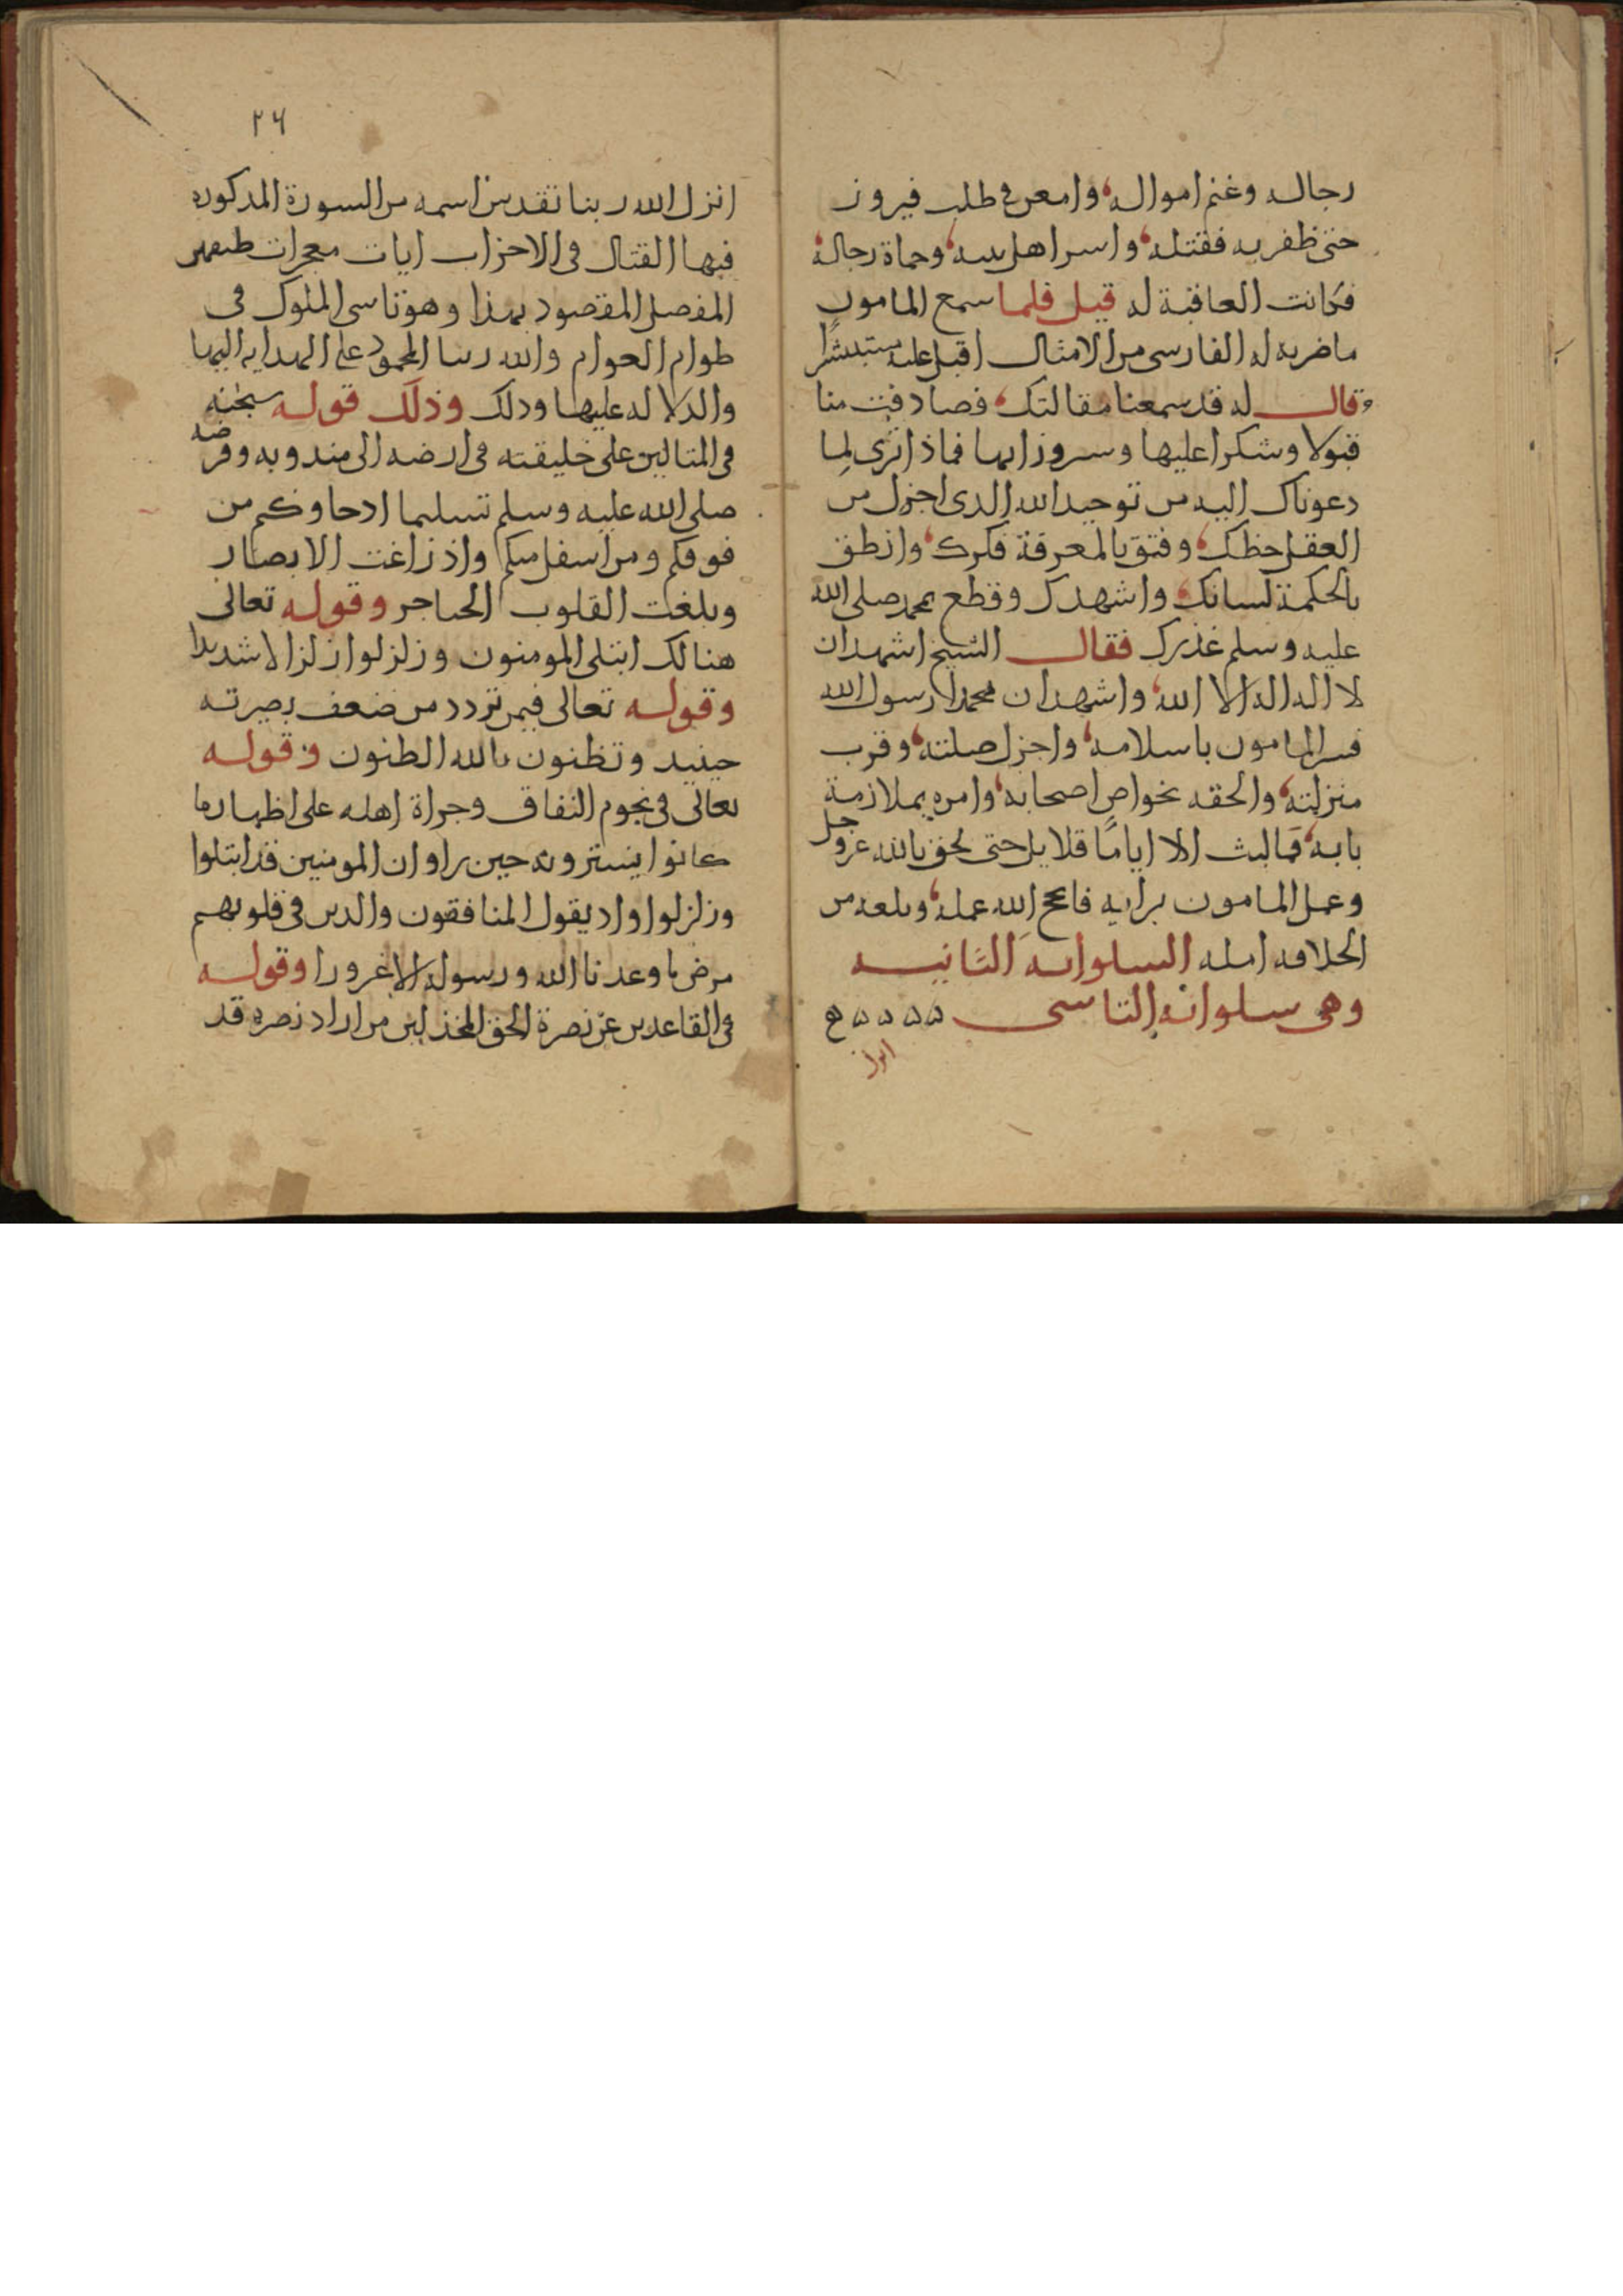 رجاله وغنم امواله وامعن في طلب فيروز
حتى ظفر به فقتله واسر اهل بيته وحماة رجاله
فكانت العاقبة له قيل فلما سمع المامون
ما ضربه له الفارسي من الامثال اقبل عليه مستبشرًا
وقال له قد سمعنا مقالتك فصادفت منا
قبولا وشكرا عليها وسرورا بها فماذا ترى لما
دعوناك اليه من توحيد الله الذي اجزل من
العقل حظك وفتق بالمعرفة فكرك وانطق
بالحكمة لسانك واشهدك وقطع بمحمد صلى الله
عليه وسلم عذرك فقال الشيخ اشهد ان
لا اله الا الله واشهد ان محمدا رسول الله
فسر المامون باسلامه واجزل صلته وقرب
منزلته والحقه بخواص اصحابه وامره بملازمة
بابه فما لبث الا ايامًا قلايل حتى لحق بالله عز وجل
وعمل المامون برايه فانجح الله عمله وبلغه من
الخلافه امله السلوانه الثانيه
وهي سلوانه التاسى
٢٦
انزل الله ربنا تقدس اسمه من السورة المذكوره
فيها القتال في الاحزاب ايات معجزات
المفصل المقصود بهذا وهو تاسى الملوك في
والله ربنا المحمود على الهدايه اليها
والدلاله عليها وذلك وذلك قوله سبحنه
في المتالبين على خليقته في ارضه الى مندوبه وفرضه
صلى الله عليه وسلم تسليما اذ جاوكم من
فوقكم ومن اسفل منكم واذ زاغت الابصار
وبلغت القلوب الحناجر وقوله تعالى
هنالك ابتلي المومنون وزلزلوا زلزالا شديدا
وقوله تعالى فيمن تردد من ضعف بصيرته
حينيذ وتظنون بالله الظنون وقوله
تعالى في نجوم النفاق وجراة اهله على اظهار ما
كانوا يسترونه حين راوا ان المومنين قد ابتلوا
وزلزلوا واذ يقول المنافقون والذين في قلوبهم
مرض ما وعدنا الله ورسوله الا غرورا وقوله
في القاعدين عن نصرة الحق المخذلين من اراد نصره قد